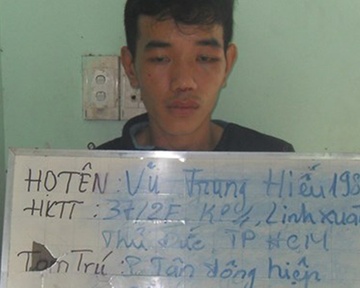 HỌ TÊN: Vũ Trung Hiếu 198
HKTT: 37/2E, KP4, Linh xuâ
Thủ Đức TP HCM
Tạm Trú: P. Tân đông hiệp